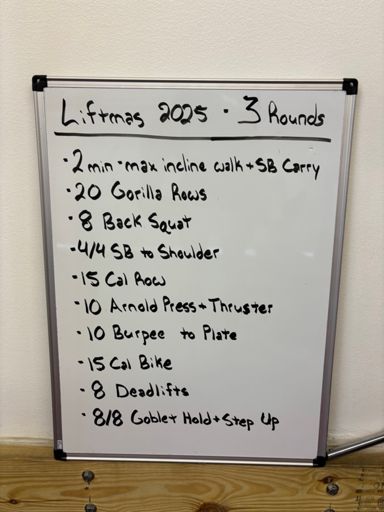 Liftmas 2025 · 3 Rounds
· 2 min · max incline walk + SB Carry
· 20 Gorilla Rows
· 8 Back Squat
· 4/4 SB to Shoulder
· 15 Cal Row
· 10 Arnold Press + Thruster
· 10 Burpee to Plate
· 15 Cal Bike
· 8 Deadlifts
· 8/8 Goblet Hold + Step Up